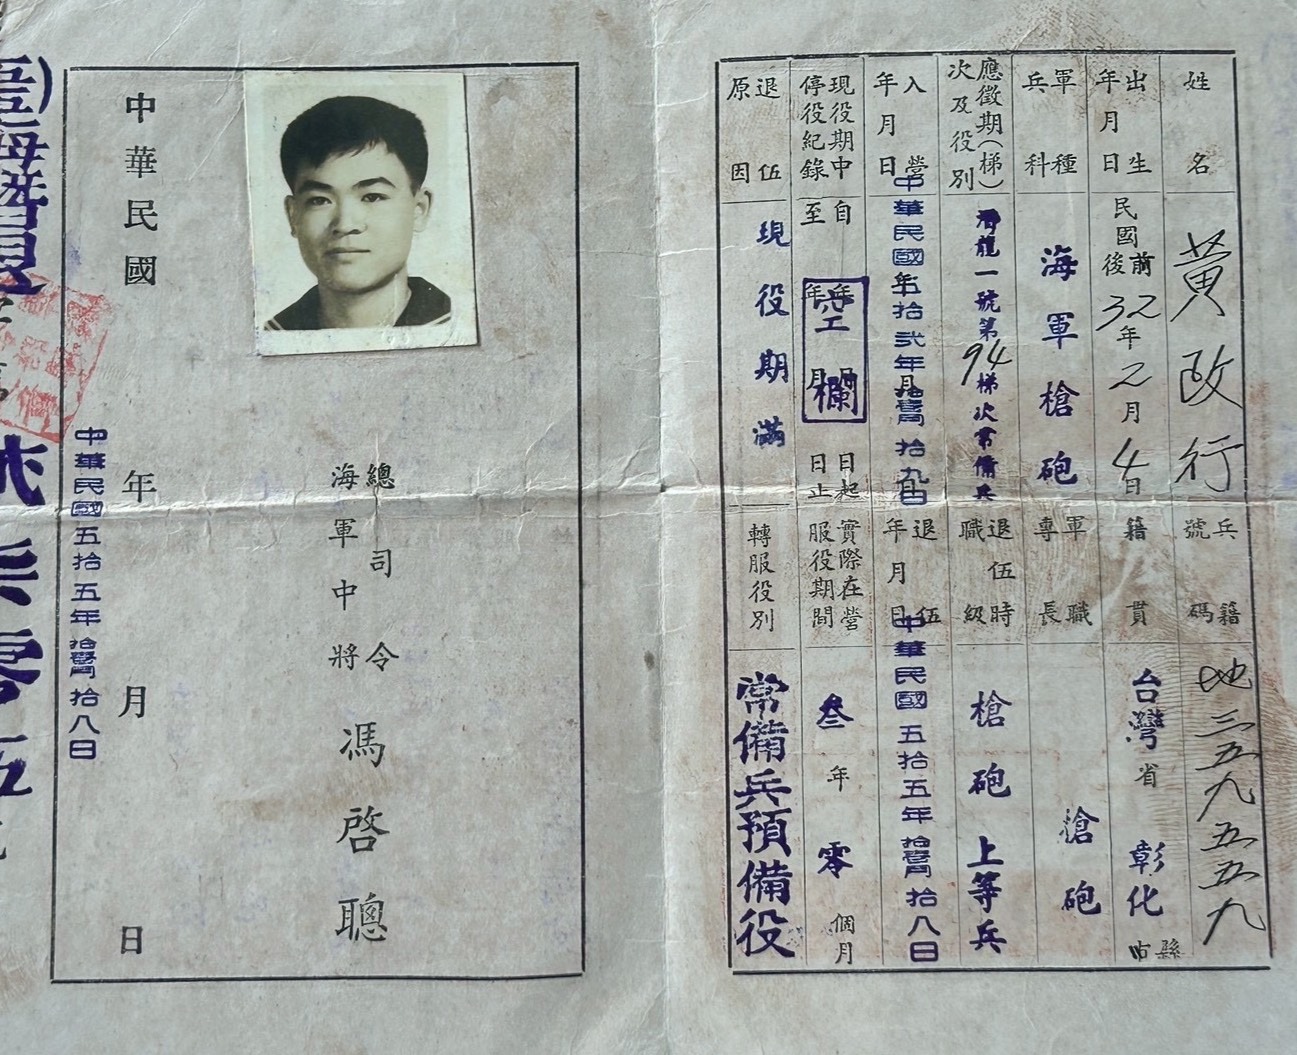 姓名 黃政行
兵籍號碼 地三五九五五九
出生年月日 民國前後 32年2月4日
籍貫 台灣省彰化縣
軍種兵科 海軍槍砲
軍職專長 槍砲
應徵期(梯)次及役別 海龍一號第94梯次常備兵
退伍時職級 槍砲上等兵
入營年月日 中華民國五拾弍年拾壹月拾九日
退伍年月日 中華民國五拾五年拾壹月拾八日
現役期中停役紀錄 自年月日起至年月日止 空欄
實際在營服役期間 叁年零個月
退伍原因 現役期滿
轉服役別 常備兵預備役
總司令
海軍中將
馮啓聰
中華民國 年 月 日
中華民國五拾五年拾壹月拾八日